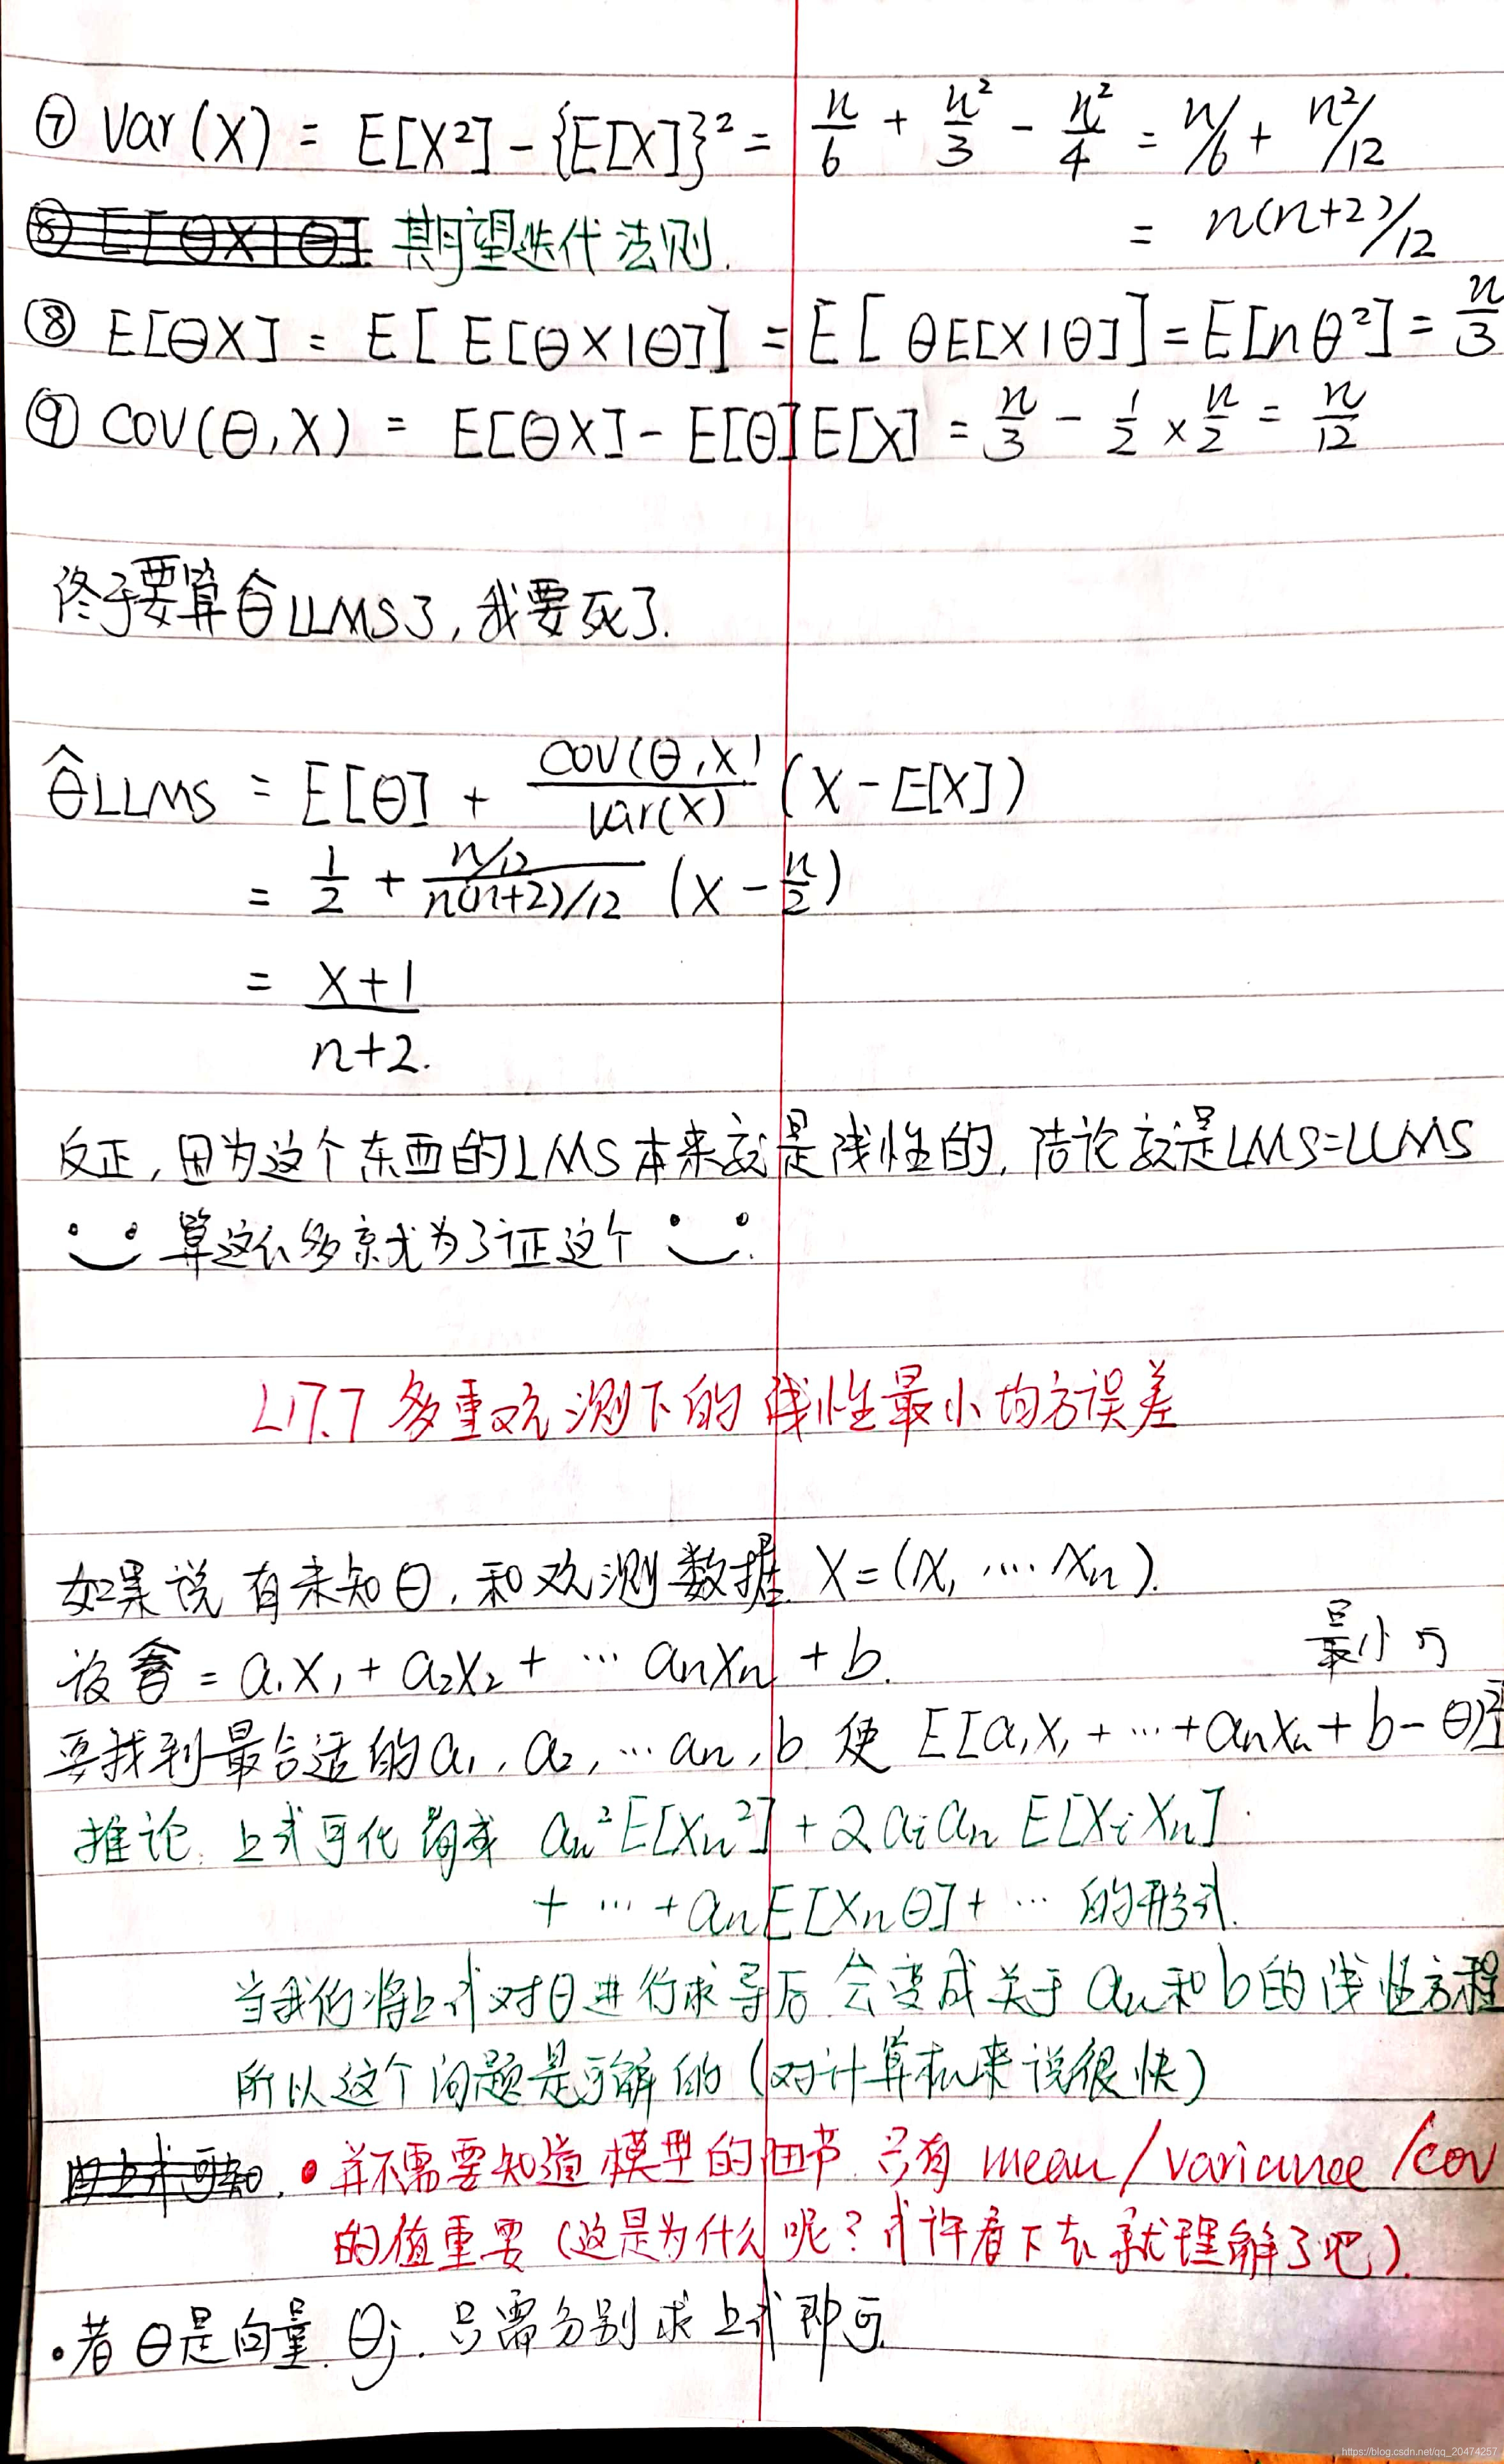 ⑦ Var(X) = E[X²] - {E[X]}² = n/6 + n²/3 - n²/4 = n/6 + n²/12
= n(n+2)/12
期望迭代法则.
⑧ E[ΘX] = E[ E[ΘX|Θ]] = E[ ΘE[X|Θ]] = E[nΘ²] = n/3
⑨ COV(Θ,X) = E[ΘX] - E[Θ]E[X] = n/3 - 1/2 × n/2 = n/12
终于要算Θ̂LLMS了,我要死了.
Θ̂LLMS = E[Θ] + COV(Θ,X)/Var(X) (X - E[X])
= 1/2 + (n/12)/(n(n+2)/12) (X - n/2)
= (X+1)/(n+2).
反正,因为这个东西的LMS本来就是线性的,结论就是LMS=LLMS
算这么多就为了证这个
L17.7 多重观测下的线性最小均方误差
如果说有未知Θ,和观测数据 X=(X₁ ⋯ Xn).
设Θ̂ = a₁X₁ + a₂X₂ + ⋯ anXn + b.
要找到最合适的a₁, a₂, ⋯ an, b 使 E[(a₁X₁ + ⋯ + anXn + b - Θ)²] 最小
推论: 上式可化简成 an²E[Xn²] + 2aian E[XiXn]
+ ⋯ + anE[XnΘ] + ⋯ 的形式.
当我们将上式对Θ进行求导后 会变成关于an和b的线性方程
所以这个问题是可解的 (对计算机来说很快)
• 并不需要知道模型的细节 只有 mean/variance/cov
的值重要 (这是为什么呢? 或许看下去就理解了吧).
• 若Θ是向量. Θj. 只需分别求上式即可.
https://blog.csdn.net/qq_20474257